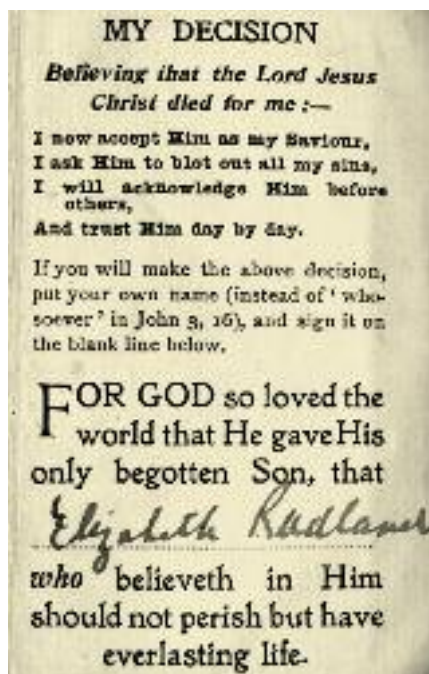 MY DECISION
Believing that the Lord Jesus
Christ died for me :—
I now accept Him as my Saviour,
I ask Him to blot out all my sins,
I will acknowledge Him before
others,
And trust Him day by day.
If you will make the above decision,
put your own name (instead of ‘ who-
soever ’ in John 3, 16), and sign it on
the blank line below.
FOR GOD so loved the
world that He gave His
only begotten Son, that
Elizabeth
who believeth in Him
should not perish but have
everlasting life.